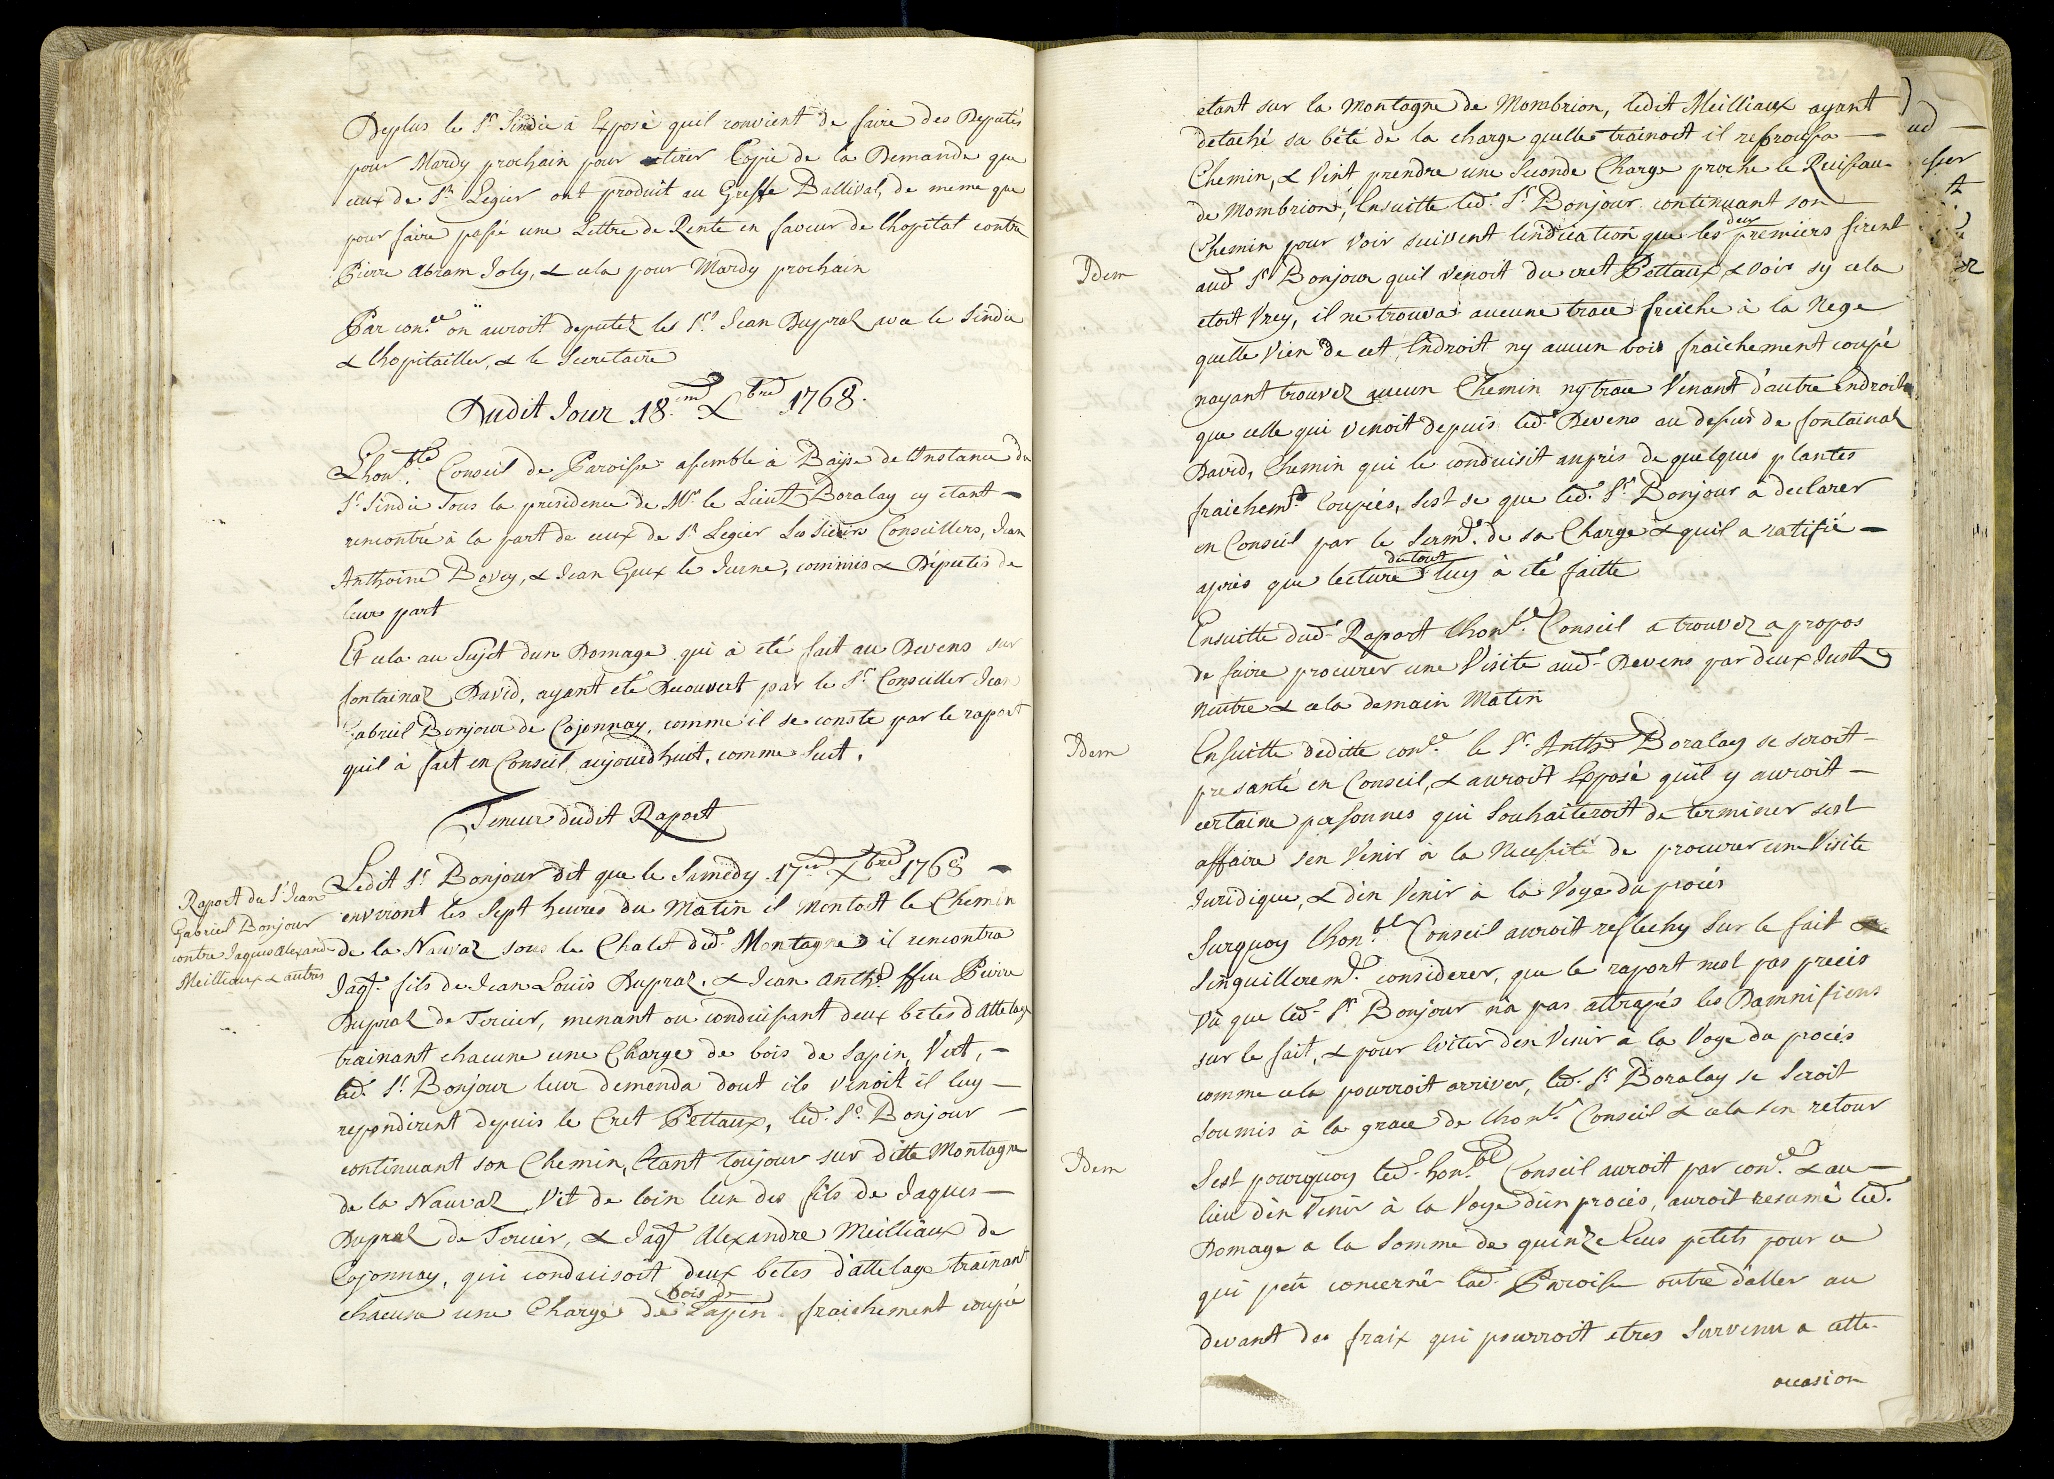 Deplus le Sr Sindic à Exposé quil convient de faire des Deputés
pour Mardy prochain pour retirer Copie de la Demande que
ceux de St Legier ont produit au Greffe Ballival, de meme que
pour faire passé une Lettre de Rente en faveur de lhopital contre
Pierre Abram Joly, & cela pour Mardy prochain
Par con.ce on auroit deputéz les Srs Jean Dupraz avec le Sindic
& lhopitailler, & le Secretaire
Dudit Jour 18.me Xbre 1768.
Lhon.ble Conseil de Paroisse assemble à Baÿse de l'Instance du
Sr Sindic sous la presidence de Mr le Lieut Boralay cy etant
rencontré à la part de ceux de St Legier Les Sieurs Conseillers, Jean
Anthoine Bovey, & Jean Geux le Jeune, commis & Députés de
leur part
Et cela au Sujet dun Domage qui à eté fait au Devens sur
fontainaz David, ayant eté Decouvert par le Sr Conseiller Jean
Gabriel Bonjour de Cojonnay, comme il se conste par le raport
quil à fait en Conseil aujourdhuit, comme Suit.
Teneur dudit Raport
Raport du Sr Jean
Gabriel Bonjour
contre Jaques Alexand
Meilliaux & autres
Ledit Sr Bonjour dit que le Samedy 17me Xbre 1768
environt les Sept heures du Matin il montoit le Chemin
de la Nauvaz sous le Chalet dud. Montagne il rencontra
Jaq. fils de Jean Loüis Dupraz, & Jean Anth. ffeu Pierre
Dupraz de Tercier, menant ou conduissant deux bêtes d'Attelage
trainant chacune une Charge de bois de Sapin, Vert,
led. Sr Bonjour leur demenda dout ils venoit il luy
repondirent depuis le Cret Pettaux, led. Sr Bonjour
continuant son Chemin, Etant toujour sur ditte Montagne
de la Nauvaz Vit de loin lun des fils de Jaques
Dupraz de Tercier, & Jaq Alexandre Meilliaux de
Cojonnay, qui conduisoit deux bêtes d'attelage trainant
chacune une Charge de bois de Sapin fraichement coupé
etant sur la Montagne de Mombrion, ledit Meilliaux ayant
detaché sa bêté de la charge quelle trainoit il reproussa
Chemin, & Vint prendre une Seconde Charge proche le Ruissau
de Mombrion, Ensuitte led. Sr Bonjour continuant son
Chemin pour voir suivent lindication que les deux premiers firent
Idem
aud Sr Bonjour quil venoit du cret Pettaux & voir sy cela
etoit Vrey, il ne trouva aucune trace freiche à la Nege
quelle Vien de cet Endroit ny aucun bois fraichement coupé
nayant trouvez aucun Chemin ny trace Venant d'autre Endroit
que celle qui venoit depuis led. Devens au dessus de fontainaz
David, Chemin qui le conduisit auprés de quelques plantes
fraichem.t Coupées, Sest se que led. Sr Bonjour à declarer
en Conseil par le Serm.t de sa Charge & quil a ratifié
aprés que lecture du tout luy à eté faitte
Ensuitte dud. Raport lhon.le Conseil a trouvez a propos
de faire procurer une Visite aud. Devens par deux Just
neutre & cela demain Matin
Idem
Ensuitte deditte con.ce le Sr Anth Boralay se seroit
presanté en Conseil, & auroit Exposé quil y auroit
certaine personnes qui Souhaiteroit de terminer sest
affaire sen Venir à la Necessité de procurer une Visite
Juridique, & den Venir à la Voye du procés
Surquoy lhon.ble Conseil auroit reflechy sur le fait &
Singuillerem.t considerer, que le raport nest pas precis
Vû que led. Sr Bonjour na pas attrapés les Damnifiens
sur le fait, & pour Eviter den Venir a la Voye du procés
comme cela pourroit arriver, led. Sr Boralay se Seroit
soumis à la grace de lhon.le Conseil & cela sen retour
Idem
Sest pourquoy led. hon.ble Conseil auroit par con.ce & au
lieu dèn Venir à la Voye dùn procés, auroit resumé led.
Domage a la Somme de quinze Ecus petits pour ce
qui peut concerné lad. Paroisse outre d'aller au
devant des fraix qui pourroit etres Survenu a cette
occasion